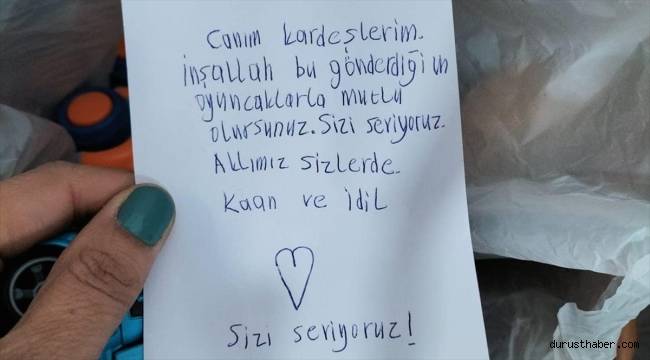 Canım kardeşlerim.
İnşallah bu gönderdiğim
oyuncaklarla mutlu
olursunuz. Sizi seviyoruz.
Aklımız sizlerde.
Kaan ve İdil
Sizi seviyoruz!
durusthaber.com